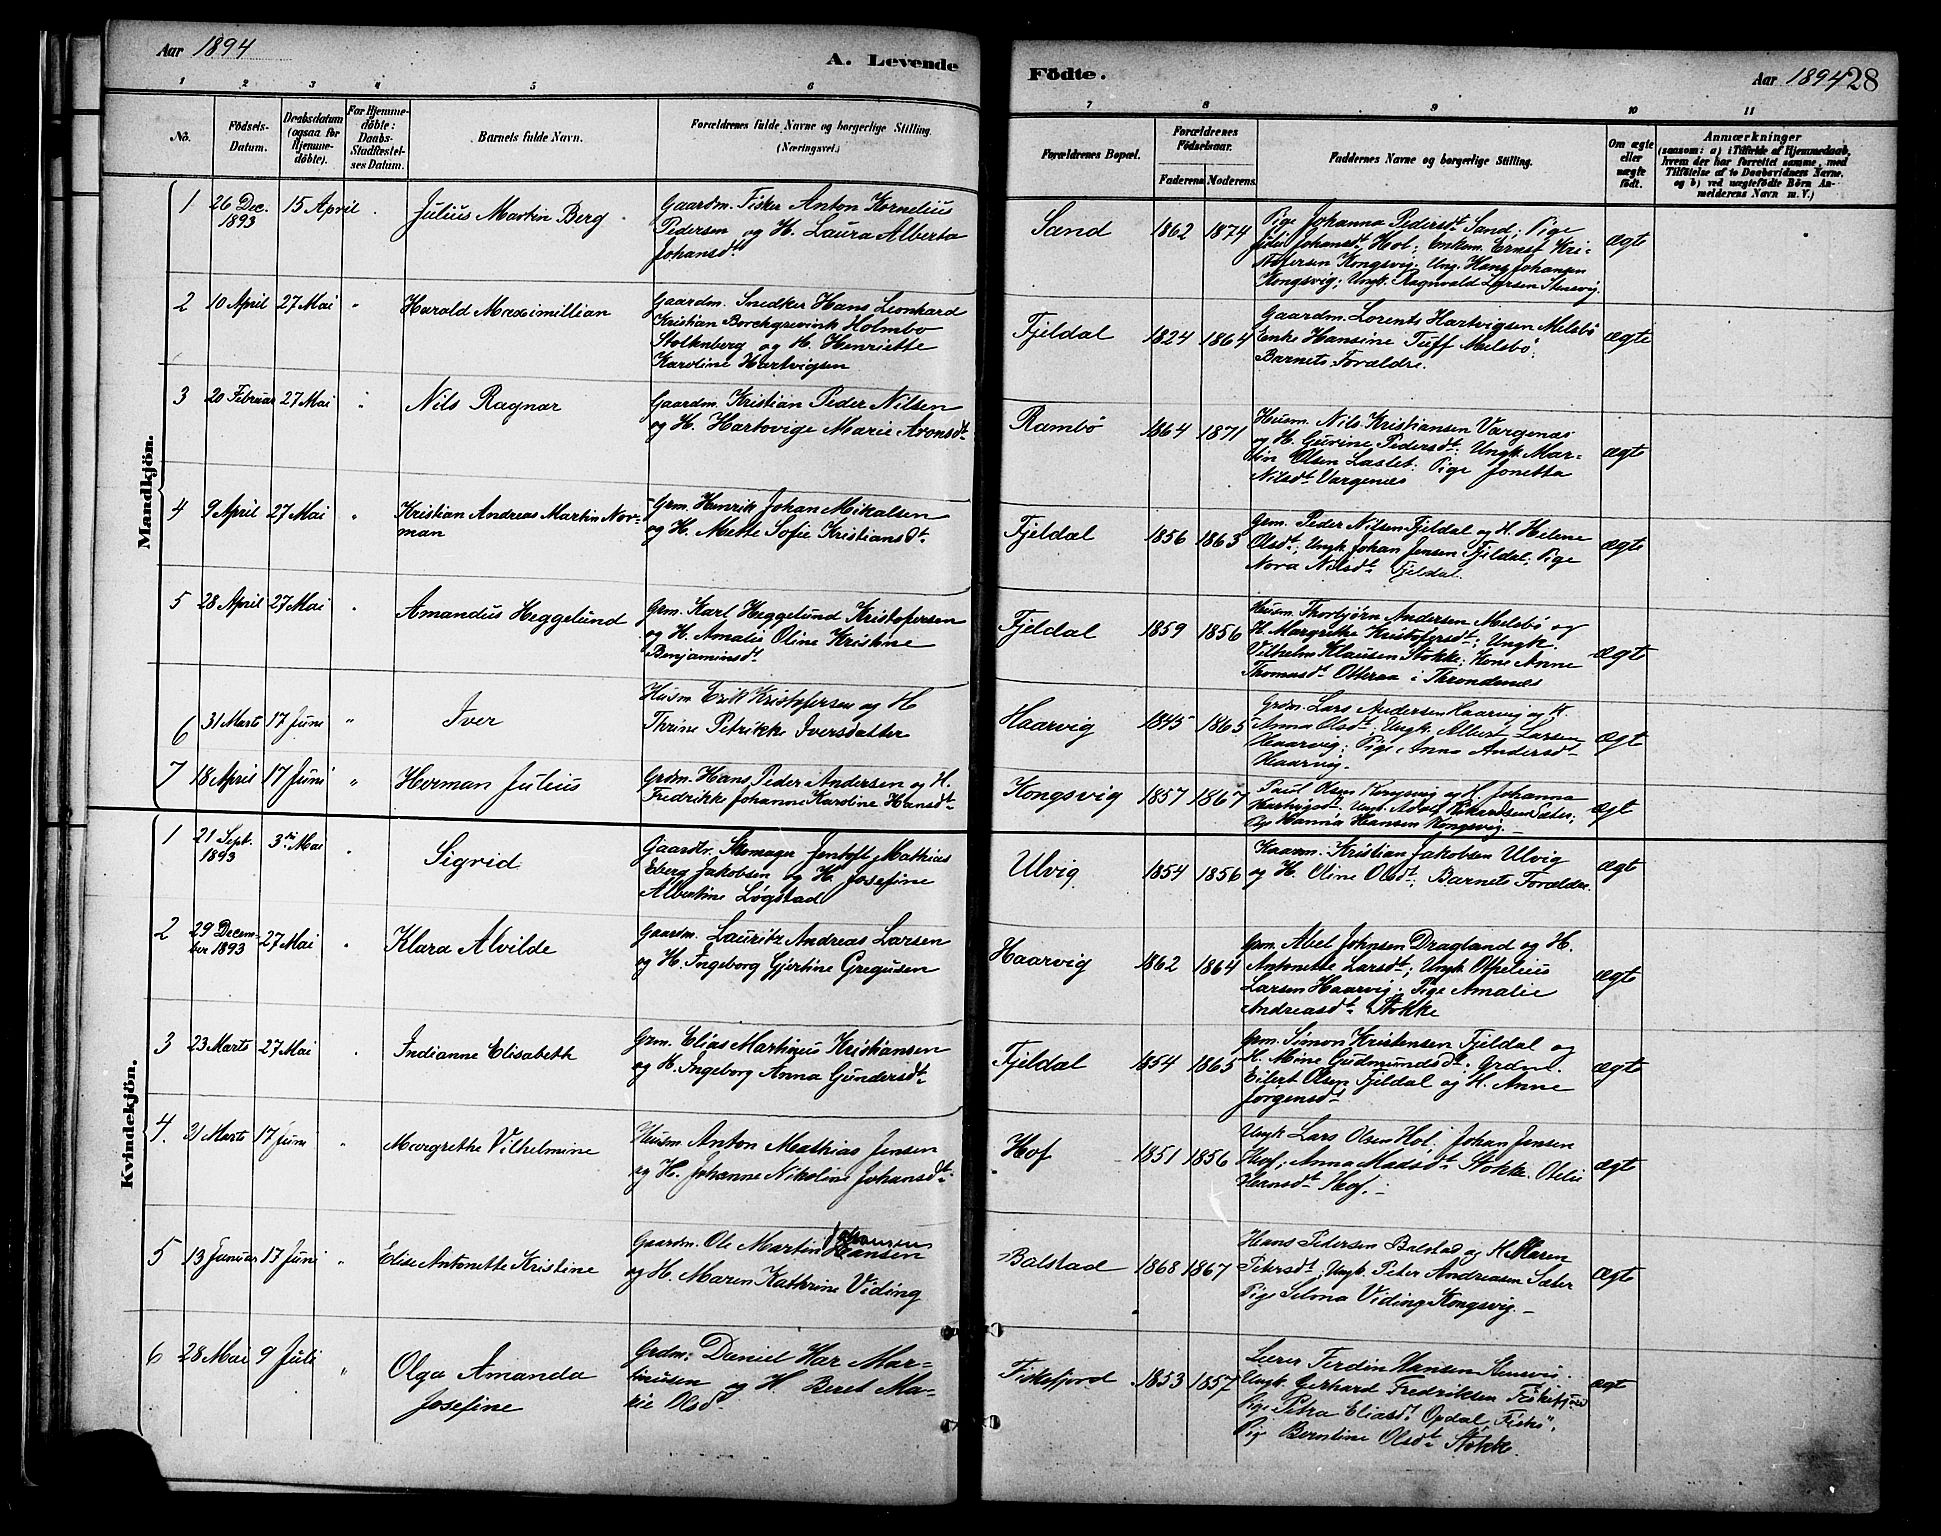 Aar 1894
A. Levende
1 2 3 4 5 6
No.
Födsels-Datum.
Daabsdatum (ogsaa for Hjemme-döbte).
For Hjemme-döbte: Daabs-Stadfæstel-ses Datum.
Barnets fulde Navn.
Forældrenes fulde Navne og borgerlige Stilling. (Næringsvei.)
Mandkjön.
1 26 Dec. 1893 15 April Julius Martin Berg
Gaardm. Fisker Anton Kornelius
Pedersen og H. Laura Alberta
Johansdt
2 10 April 27 Mai " Harald Maximillian
Gaardm. Snedker Hans Leonhard
Kristian Borchgrevink Holmbo
Stoltenberg og H. Henriette
Karoline Hartvigsen
3 20 Februar 27 Mai " Nils Ragnar
Gaardm. Kristian Peder Nilsen
og H. Hartvige Marie Aronsdt
4 9 April 27 Mai " Kristian Andreas Martin Nor-
man
Grm. Henrik Johan Mikalsen
og H. Mette Sofie Kristiansdt
5 28 April 27 Mai " Amandus Heggelund
Grm. Karl Heggelund Kristofersen
og H. Amalie Oline Kristine
Benjaminsdt
6 31 Marts 17 Juni " Iver
Husm Erik Kristofersen og H
Thrine Petrikke Iversdatter
7 18 April 17 Juni " Herman Julius
Grdm. Hans Peder Andersen og H.
Fredrikke Johanne Karoline Hansdt
Kvindekjön.
1 21 Sept. 1893 3die Mai " Sigrid
Gaardbr. Skomager Jentoft Mathias
Eberg Jakobsen og H. Josefine
Albertine Løgstad
2 29 Decem-
ber 1893 27 Mai " Klara Alvilde
Gaardm. Lauritz Andreas Larsen
og H. Ingeborg Gjertine Gregusen
3 23 Marts 27 Mai " Indianne Elisabeth
Grm. Elias Martinus Kristiansen
og H. Ingeborg Anna Gundersdt
4. 31 Marts 17 Juni " Margrethe Vilhelmine
Husm Anton Mathias Jensen
og H. Johanne Nikoline Johansdt
5 13 Januar 17 Juni " Elise Antonette Kristine
Gaardm. Ole Martin Hansen
og H. Maren Kathrine Viding
6 28 Mai 9 Juli " Olga Amanda
Josefine
Grdm. Daniel Har Mar-
tinusen og H. Beret Ma-
rie Olsd.
Födte.
Aar 1894 28
7 8 9 10 11
Forældrenes Bopæl.
Forældrenes Födselsaar.
Faderens. Moderens.
Faddernes Navne og borgerlige Stilling.
Om ægte eller uægte födt.
Anmærkninger
(saasom: a) i Tilfælde af Hjemmedaab,
hvem der har forrettet samme, med
Tilföielse af to Daabsvidners Navne.
og b) ved uægtefödte Börn An-
melderens Navn m. V.)
Sand 1862 1874
Pige Johanna Pedersdt Sand; Pige
Julie Johansdt, Hol; Enkem. Ernst Kri-
stofersen Kongsvig. Ung. Hans Johansen
Kongsvig; Ungk. Ragnvald Larsen Stensvig.
ægte
Fjeldal 1824 1864
Gaardm. Lorents Hartvigsen Melsbö
Enke Hansine Tuff Melsbö;
Barnets Forældre.
ægte
Rambö 1864 1871
Husm. Nils Kristiansen Vargenæs
og H. Gurine Pedersdt; Ungk. Mar-
tin Olsen Lastet. Pige Jonetta
Nilsdt Vargenæs
ægte
Fjeldal 1856 1863
Grm. Peder Nilsen Fjeldal og H. Helene
Olsdt; Ungk. Johan Jensen Fjeldal, Pige
Nora Nilsdt Fjeldal.
ægte
Fjeldal 1859 1856
Husm. Thorbjørn Andersen Melsbö og
H. Margrethe Kristofersdt; Ungk.
Vilhelm Klausen Stokke; Kone Anne
Thomasdt Otteraa i Throndenæs
ægte
Haarvig 1845 1865
Grdm. Lars Andersen Haarvig og H.
Anna Olsdt; Ungk. Albert Larsen
Haarvig; Pige Anna Andersdt
Haarvig.
ægte
Kongsvig 1857 1867
Paul Olsen Kongsvig og H. Johanna
Hartvigsdt. Ungk. Adolf Rikardsen Sæter;
Pige Hanna Hansen Kongsvig.
ægt
Ulvig 1854 1856
Kaarm. Kristian Jakobsen Ulvig
og H. Oline Olsdt; Barnets Forældre.
ægte
Haarvig 1862 1864
Grm. Abel Johnsen Dragland og H.
Antonette Larsdt; Ungk Othelius
Larsen Haarvig; Pige Amalie
Andreasdt Stokke
ægte
Fjeldal 1854 1865
Grm. Simon Kristensen Fjeldal og
H. Mine Gudmundsdt; Grdm.
Eilert Olsen Fjeldal og H. Anne
Jørgensdt
ægte
Hof 1851 1856
Ungk Lars Olsen Hol. Johan Jensen
Hof; Anna Madsdt Stokke. Otelie
Hansdt Hof.
ægte
Balstad 1868 1867
Hans Pedersen Balstad og H Maren
Petersdt; Ungk. Peter Andreasen Sæter
Pige Selma Viding Kongsvig.
ægte
Fiskefjord 1853 1857
Lærer Ferdin Hansen
Ungk. Gerhard Fredriksen Fiskefjord
Pige Petra Eliasdt Opdal, Fiskf"
Pige Berntine Olsdt Stokke.
ægt